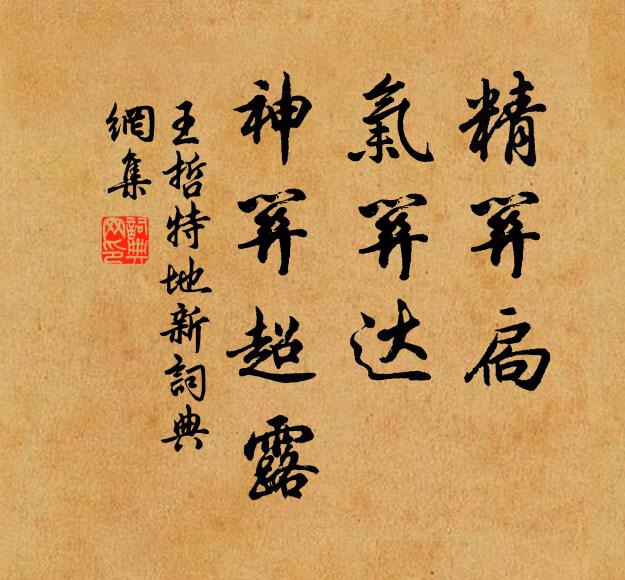 精扃
氣达
神超露
王哲特地新詞典
網集
詞典
网印